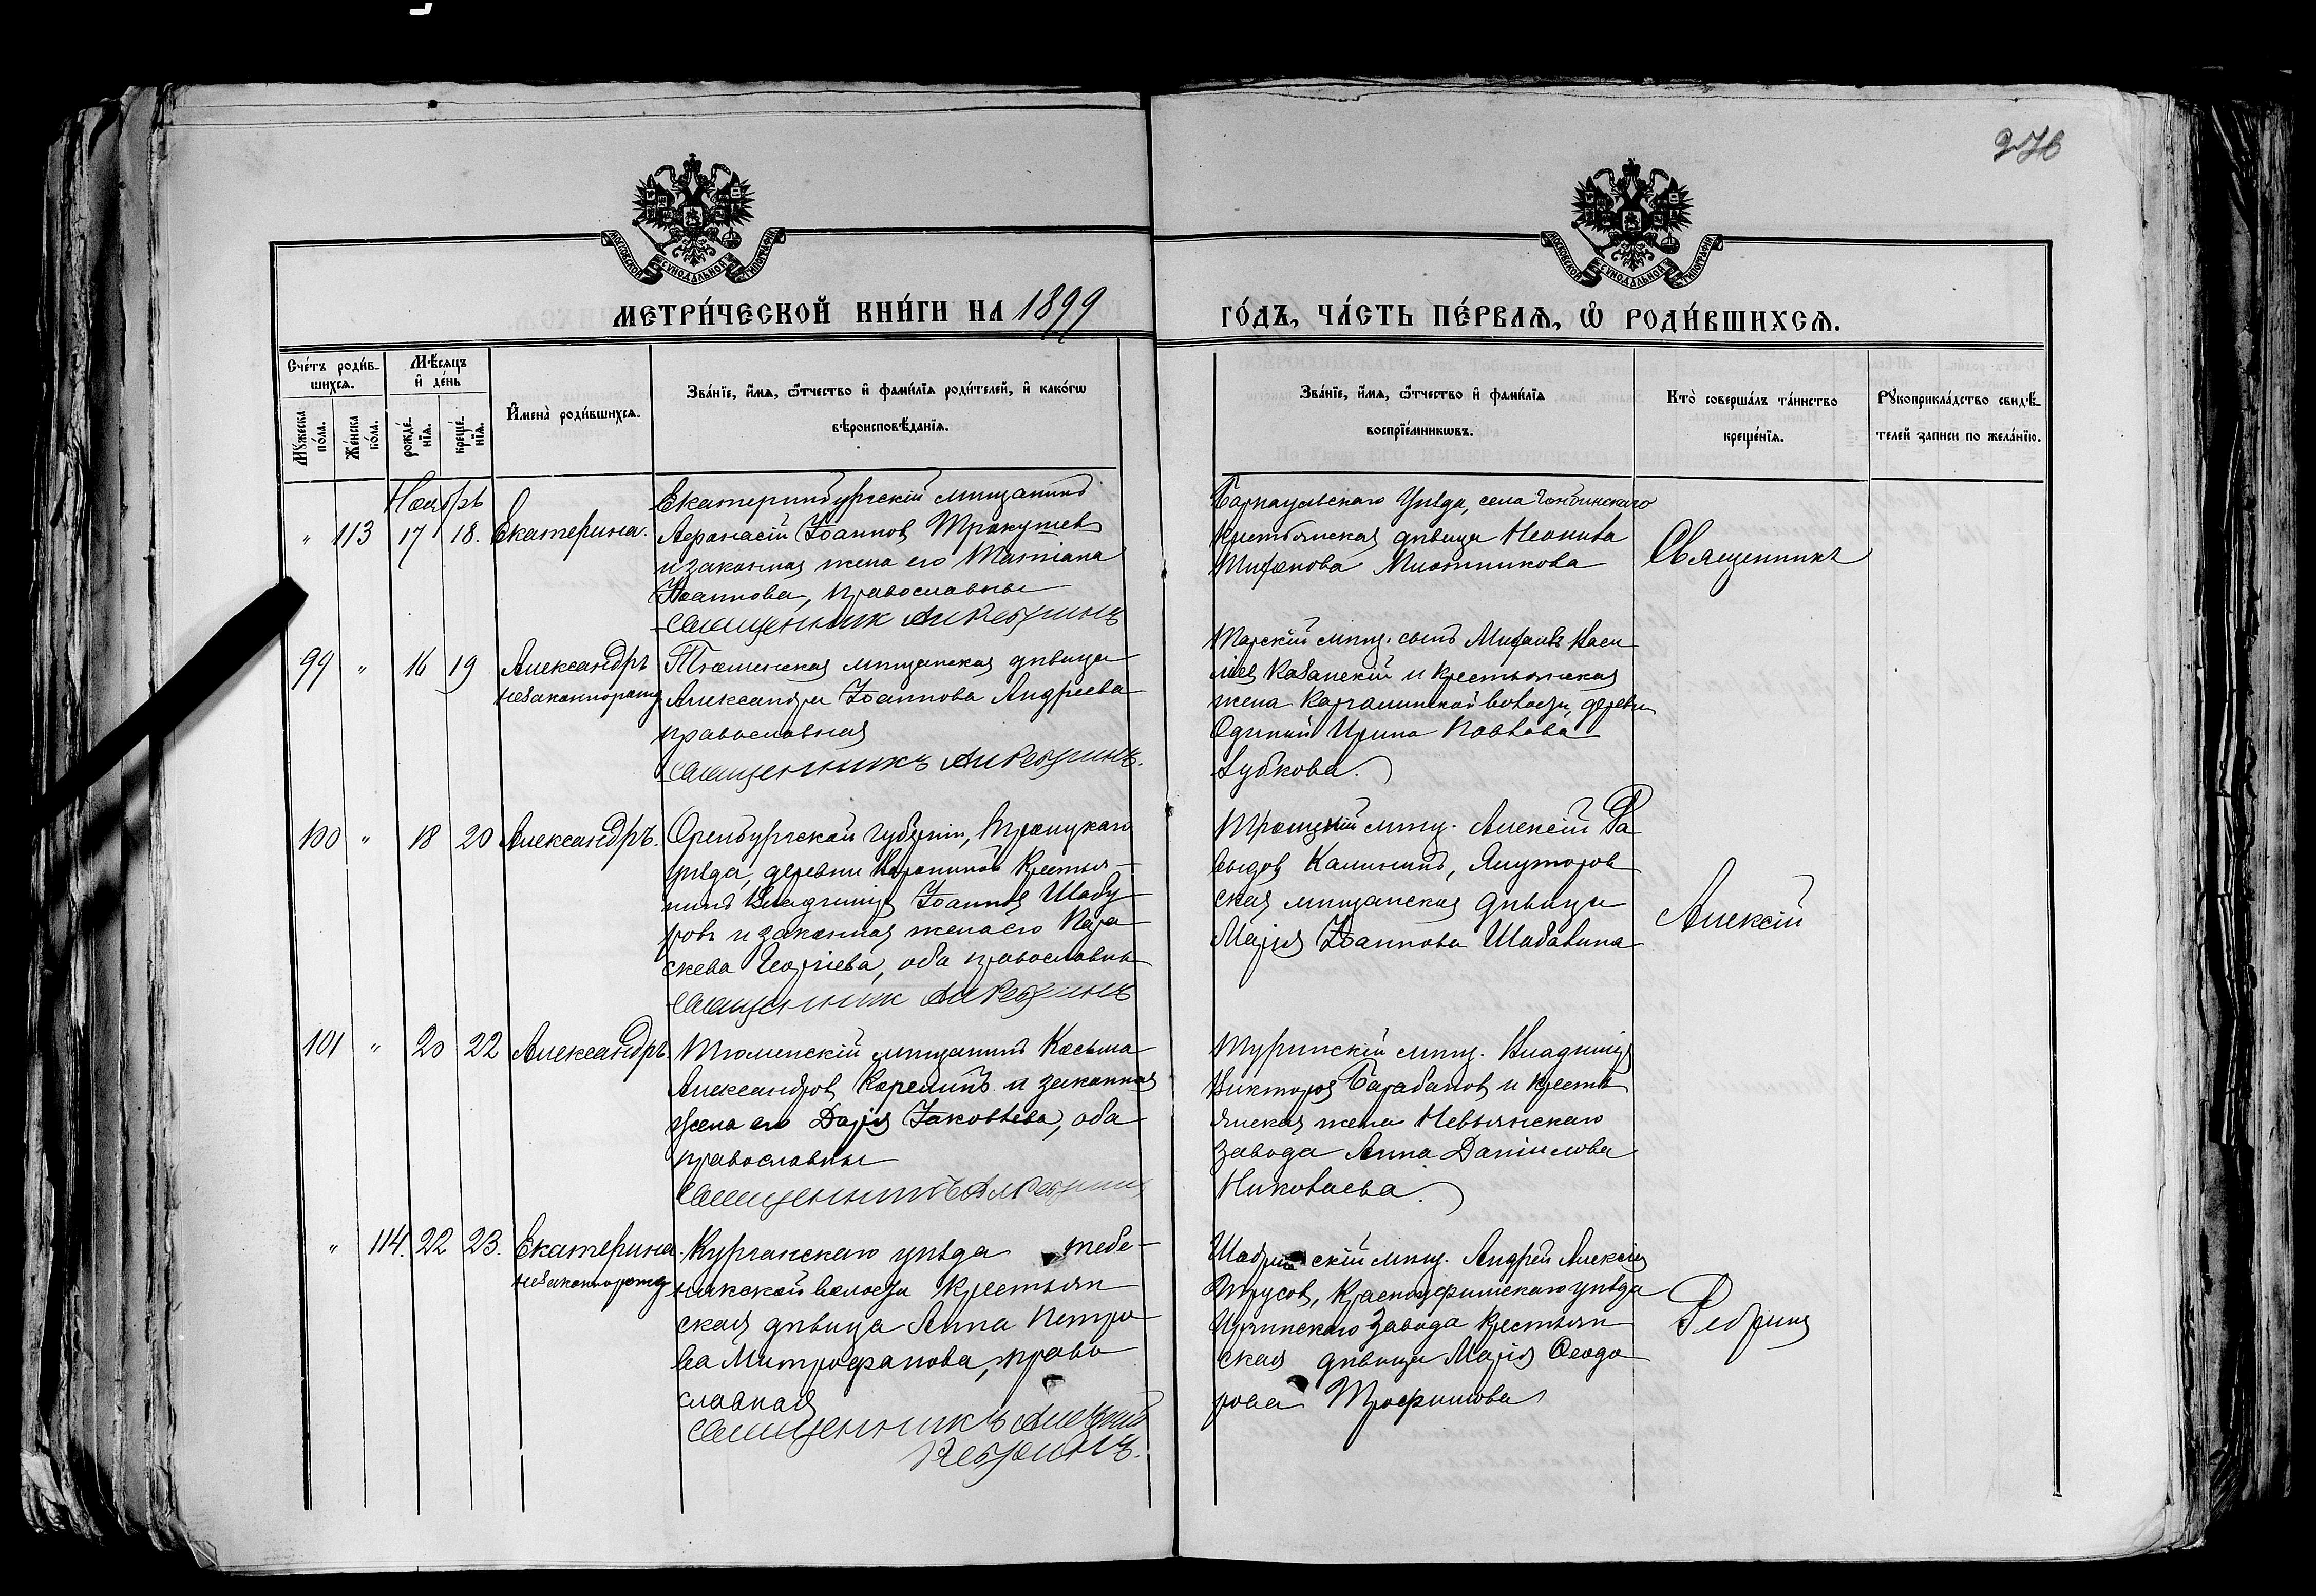 276
МОСКОВСКОЙ СѴНОДАЛЬНОЙ ТИПОГРАФІИ
МОСКОВСКОЙ СѴНОДАЛЬНОЙ ТИПОГРАФІИ
МЕТРИ́ЧЕСКОЙ КНИ́ГИ НА 1899
ГО́ДЪ, ЧА́СТЬ ПЕ́РВАѦ, Ѡ РОДИ́ВШИХСѦ.
Сче́тъ роди́в-
шихсѧ.
Мꙋ́жеска
по́ла.
Же́нска
по́ла.
Мѣ́сѧцъ
и҆ де́нь
рожде́-
нїѧ.
креще́-
нїѧ.
И҆мена̀ роди́вшихсѧ.
Зва́нїе, и҆́мѧ, ѻ҆́тчество и҆ фами́лїѧ роди́телей, и҆ како́гѡ
вѣроисповѣ́данїѧ.
Зва́нїе, и҆́мѧ, ѻ҆́тчество и҆ фами́лїѧ
воспрїе́мникѡвъ.
Кто̀ соверша́лъ та́инство
креще́нїѧ.
Рꙋкоприкла́дство свидѣ́-
телей записи по жела́нїю.
Ноябрь
" 113 17 18. Екатерина.
Екатеринбургскій мѣщанинъ
Аѳанасій Іоаннов
и законная жена его Татіана
Іоаннова, православные
Священник Ал Ребринъ
Барнаульскаго Уѣзда, села
Крестьянская дѣвица Неонила
Священникъ
99 " 16 19 Александръ
незаконнорожд
Тюменская мѣщанская дѣвица
Александра Іоаннова Андреева
православная
Священникъ Ал Ребринъ.
Тарскій мѣщ. сынъ Михаилъ Васи
ліев Казанскій и крестьянская
жена волости, деревни
Одиной Ирина Павлова
Зубкова.
100 " 18 20 Александръ.
Оренбургской губерніи, Троицкаго
уѣзда, деревни Крестья-
нинъ Владиміръ Іоаннов Шабу-
ровъ и законная жена его Пара-
скева Георгіева, оба православны
Священник Ал Ребринъ
Троицкій мѣщ. Алексій Да
выдов Калининъ, Ялуторов
ская мѣщанская дѣвица
Марія Іоаннова Шабалина
Алексій
101 " 20 22 Александръ.
Тюменскій мѣщанинъ Косьма
Александров Корелинъ и законная
жена его Дарія Іаковлева, оба
православны
Священникъ Ал Ребринъ
Туринскій мѣщ. Владиміръ
Викторов Барабанов и кресть
янская жена Невьянскаго
завода Анна Даніилова
Николаева.
" 114. 22 23. Екатерина.
незаконнорожд
Курганскаго уѣзда Тебе-
някской волости Крестьян
ская дѣвица Анна Петро
ва Митрофанова, право
славная
Священникъ Алексій
Ребринъ.
Шадринскій мѣщ. Андрей Алексіев
Трусов, Красноуфимскаго уѣзда
завода Крестьян
ская дѣвица Марія Ѳеодо
рова Трофимова
Ребринъ